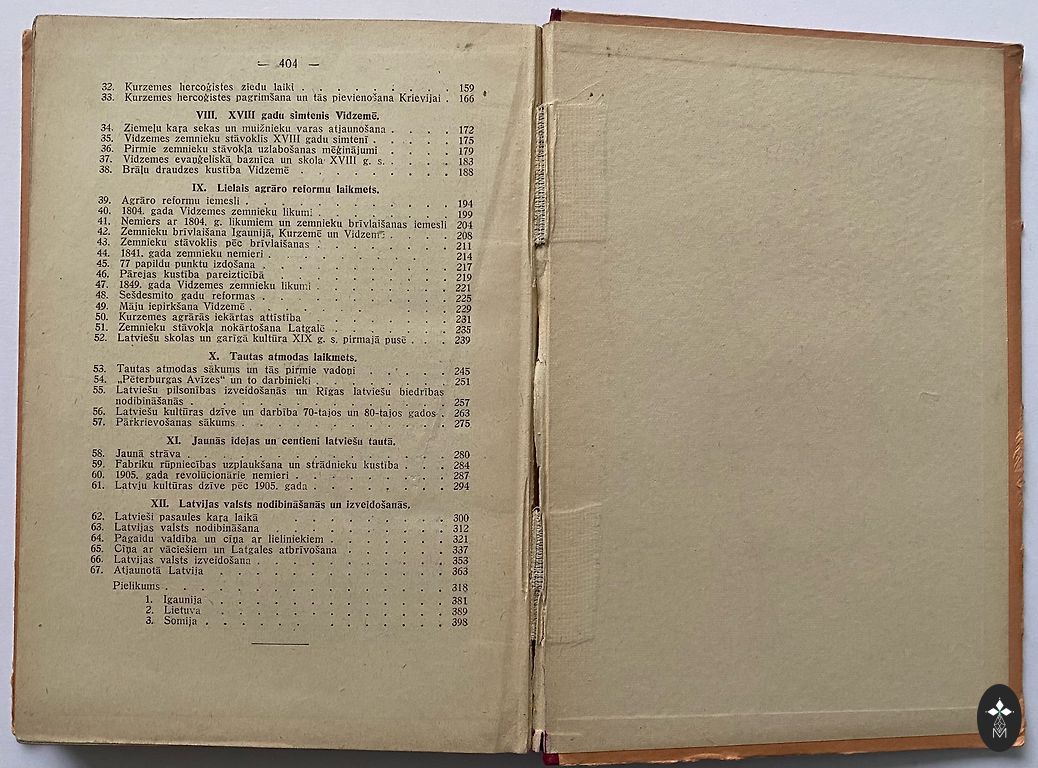 — 404 —
32. Kurzemes hercoģistes ziedu laiki . . . . . . . . 159
33. Kurzemes hercoģistes pagrimšana un tās pievienošana Krievijai . 166
VIII. XVIII gadu simtenis Vidzemē.
34. Ziemeļu kaŗa sekas un muižnieku varas atjaunošana . . . . 172
35. Vidzemes zemnieku stāvoklis XVIII gadu simtenī . . . . . 175
36. Pirmie zemnieku stāvokļa uzlabošanas mēģinājumi . . . . . 179
37. Vidzemes evaņģeliskā baznīca un skola XVIII g. s. . . . . 183
38. Brāļu draudzes kustība Vidzemē . . . . . . . . 188
IX. Lielais agrāro reformu laikmets.
39. Agrāro reformu iemesli . . . . . . . . . . 194
40. 1804. gada Vidzemes zemnieku likumi . . . . . . . 199
41. Nemiers ar 1804. g. likumiem un zemnieku brīvlaišanas iemesli 204
42. Zemnieku brīvlaišana Igaunijā, Kurzemē un Vidzemē . . . . 208
43. Zemnieku stāvoklis pēc brīvlaišanas . . . . . . . 211
44. 1841. gada zemnieku nemieri . . . . . . . . . 214
45. 77 papildu punktu izdošana . . . . . . . . . 217
46. Pārejas kustība pareizticībā . . . . . . . . . 219
47. 1849. gada Vidzemes zemnieku likumi . . . . . . . 221
48. Sešdesmito gadu reformas . . . . . . . . . 225
49. Māju iepirkšana Vidzemē . . . . . . . . . . 229
50. Kurzemes agrārās iekārtas attīstība . . . . . . . 231
51. Zemnieku stāvokļa nokārtošana Latgalē . . . . . . 235
52. Latviešu skolas un garīgā kultūra XIX g. s. pirmajā pusē . . . 239
X. Tautas atmodas laikmets.
53. Tautas atmodas sākums un tās pirmie vadoņi . . . . . 245
54. „Pēterburgas Avīzes“ un to darbinieki . . . . . . . 251
55. Latviešu pilsonības izveidošanās un Rīgas latviešu biedrības
nodibināšanās . . . . . . . . . . . . 257
56. Latviešu kultūras dzīve un darbība 70-tajos un 80-tajos gados . 263
57. Pārkrievošanas sākums . . . . . . . . . . 275
XI. Jaunās idejas un centieni latviešu tautā.
58. Jaunā strāva . . . . . . . . . . . . 280
59. Fabriku rūpniecības uzplaukšana un strādnieku kustība . . . 284
60. 1905. gada revolūcionārie nemieri . . . . . . . . 287
61. Latvju kultūras dzīve pēc 1905. gada . . . . . . . 294
XII. Latvijas valsts nodibināšanās un izveidošanās.
62. Latvieši pasaules kaŗa laikā . . . . . . . . . 300
63. Latvijas valsts nodibināšana . . . . . . . . . 312
64. Pagaidu valdība un cīņa ar lieliniekiem . . . . . . 321
65. Cīņa ar vāciešiem un Latgales atbrīvošana . . . . . 337
66. Latvijas valsts izveidošana . . . . . . . . . 353
67. Atjaunotā Latvija . . . . . . . . . . . 363
Pielikums . . . . . . . . . . . . . 318
1. Igaunija . . . . . . . . . . . 381
2. Lietuva . . . . . . . . . . . 389
3. Somija . . . . . . . . . . . 398